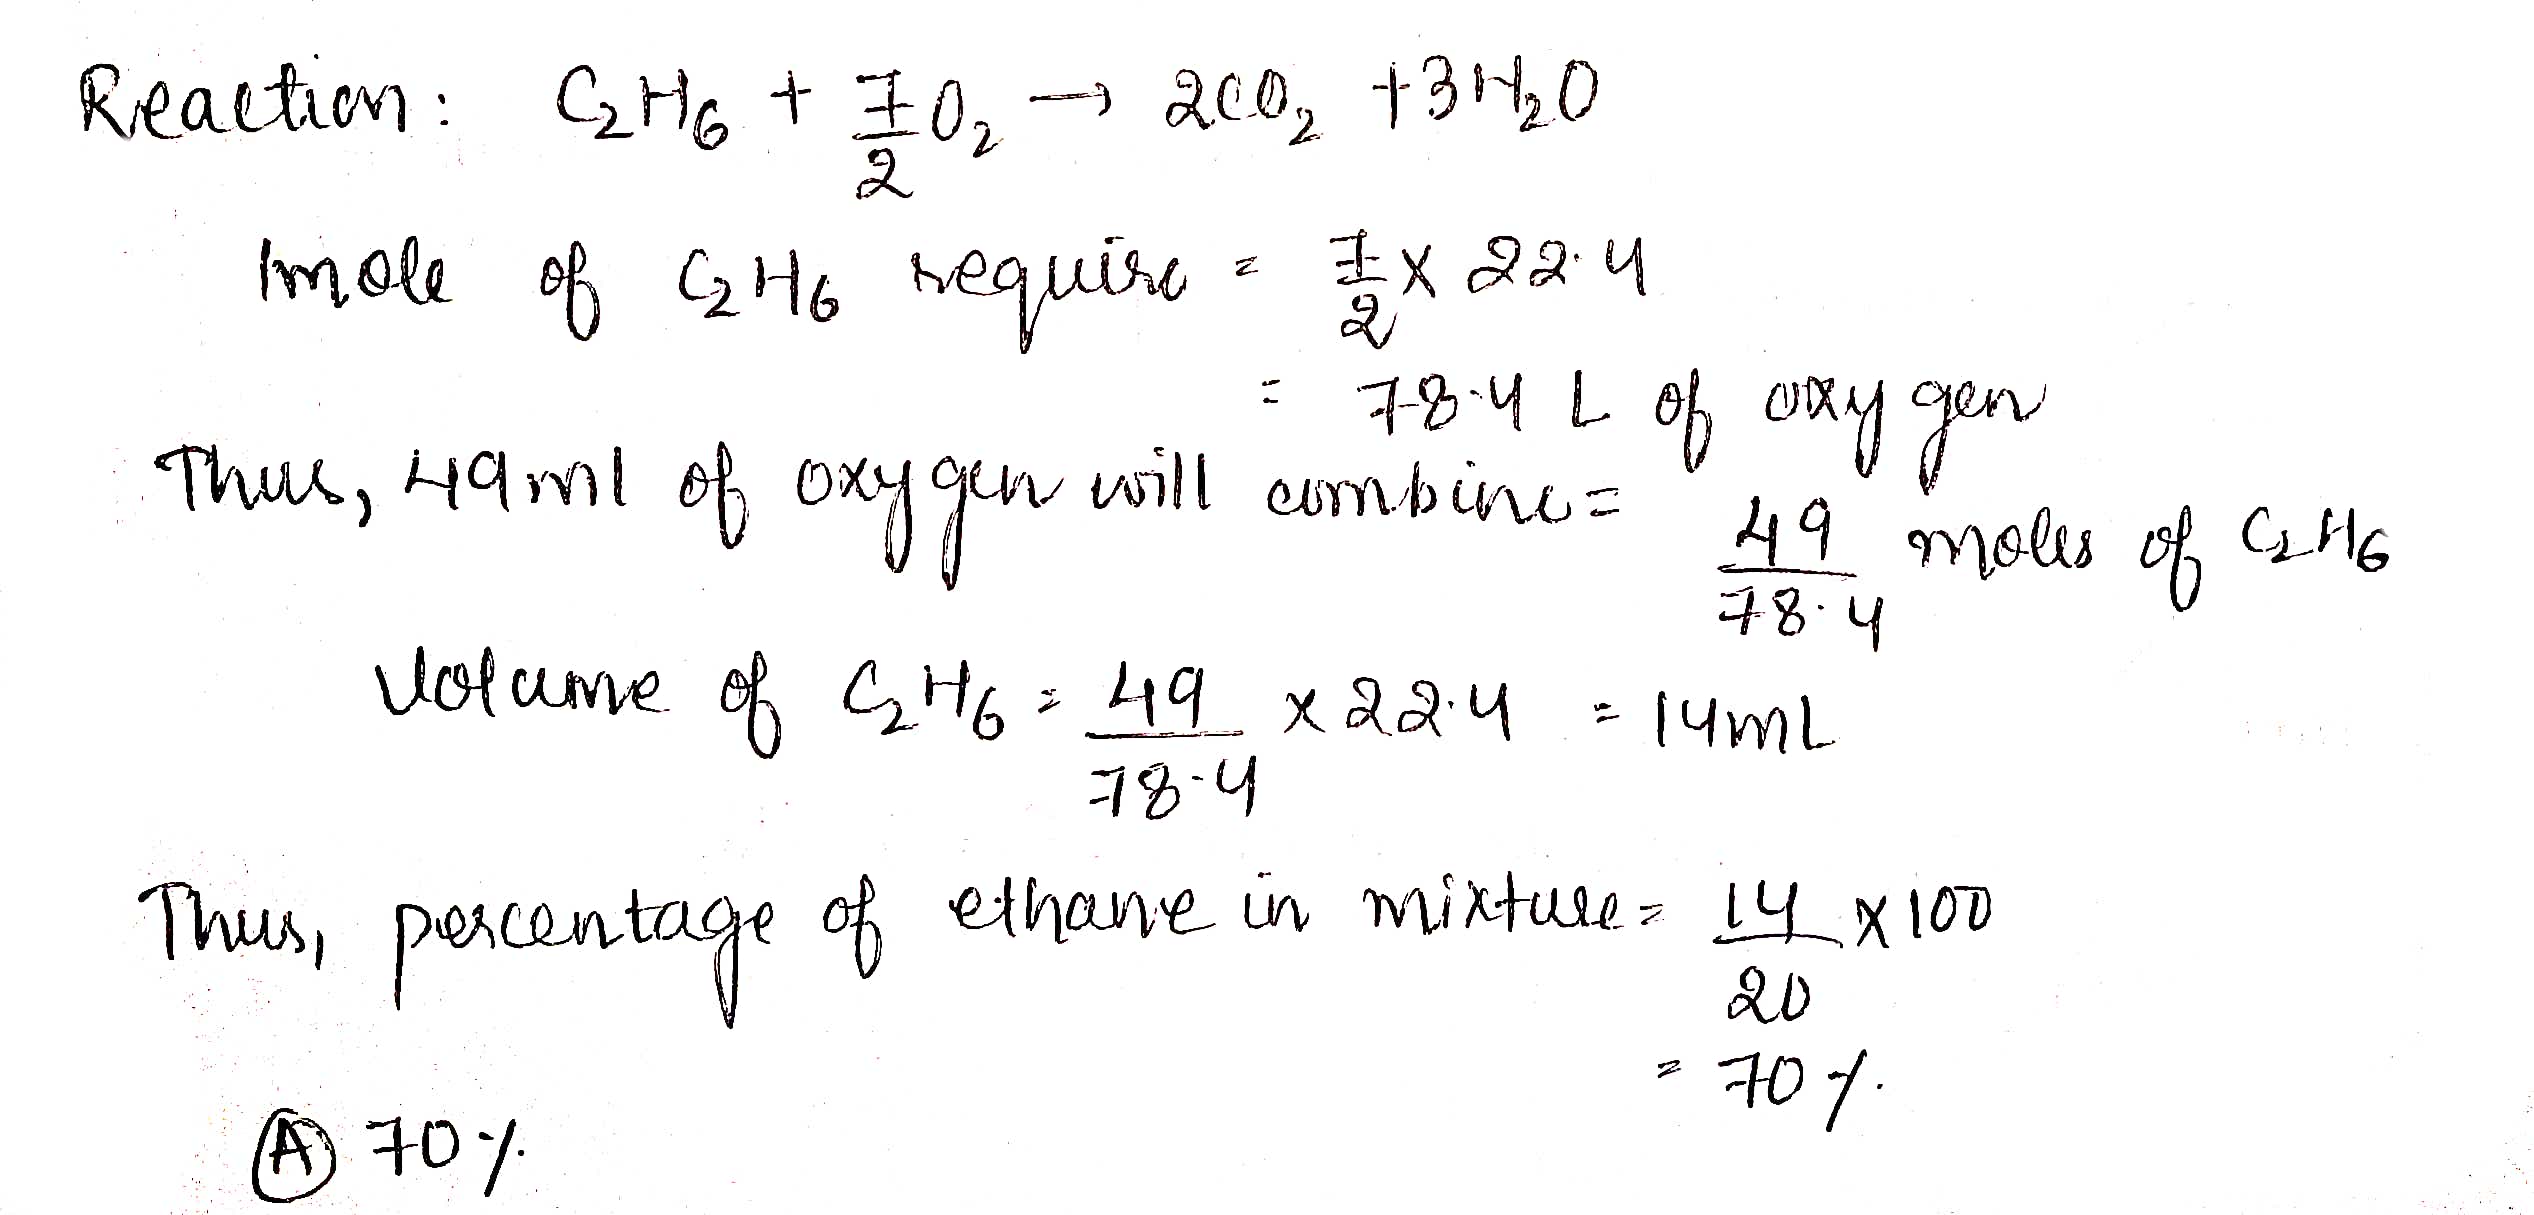 Reaction: C₂H₆ + 7/2 O₂ → 2CO₂ + 3H₂O
1mole of C₂H₆ require = 7/2 x 22.4
= 78.4 L of oxygen
Thus, 49ml of oxygen will combine = 49/78.4 moles of C₂H₆
Volume of C₂H₆ = 49/78.4 x 22.4 = 14mL
Thus, percentage of ethane in mixture = 14/20 x 100
= 70%.
(A) 70%.